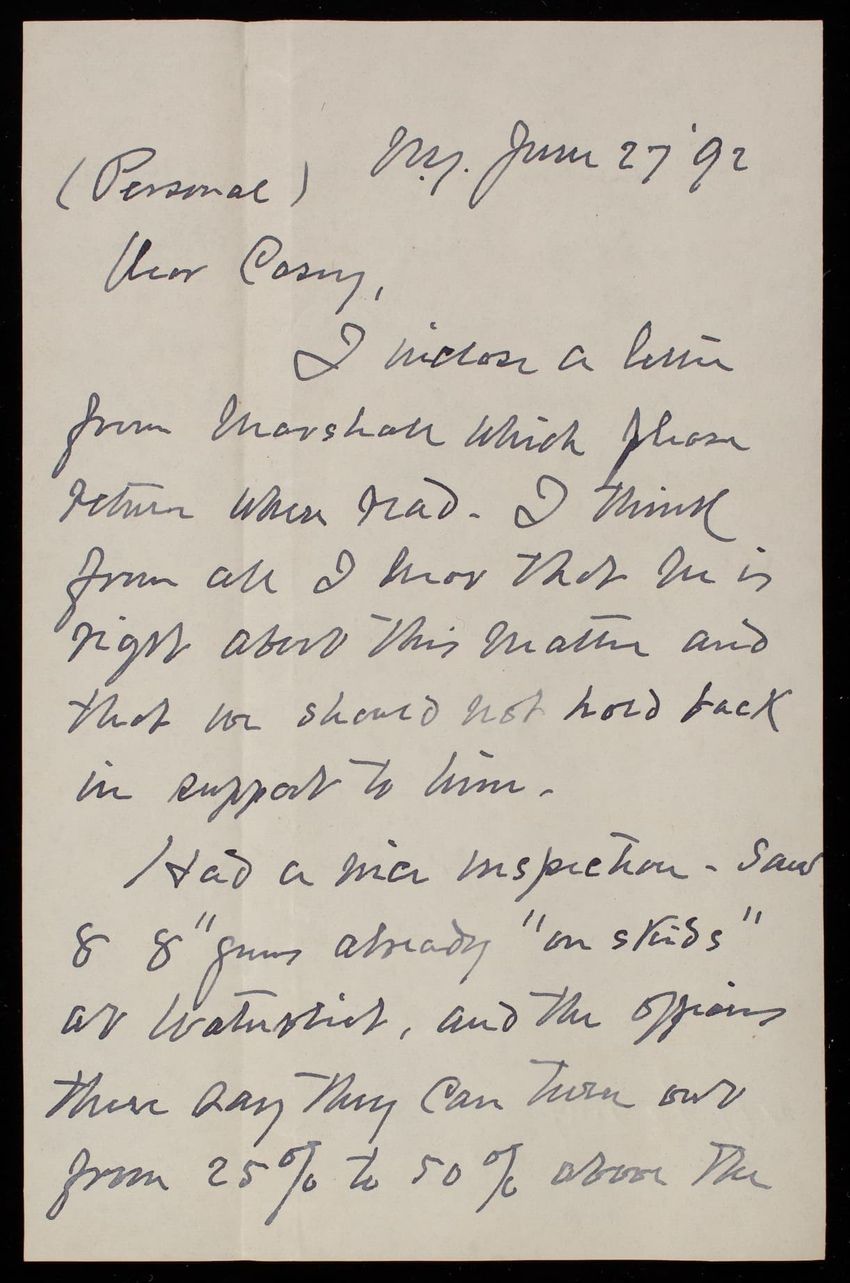 N.Y. June 27 '92
(Personal)
Dear Casey,
I inclose a letter
from Marshall which please
return when read. I think
from all I hear that he is
right about this matter and
that we should not hold back
in support to him.
Had a nice inspection - Saw
8 8" guns already "on skids"
at Watervliet, and the officers
there say they can turn out
from 25% to 50% above the